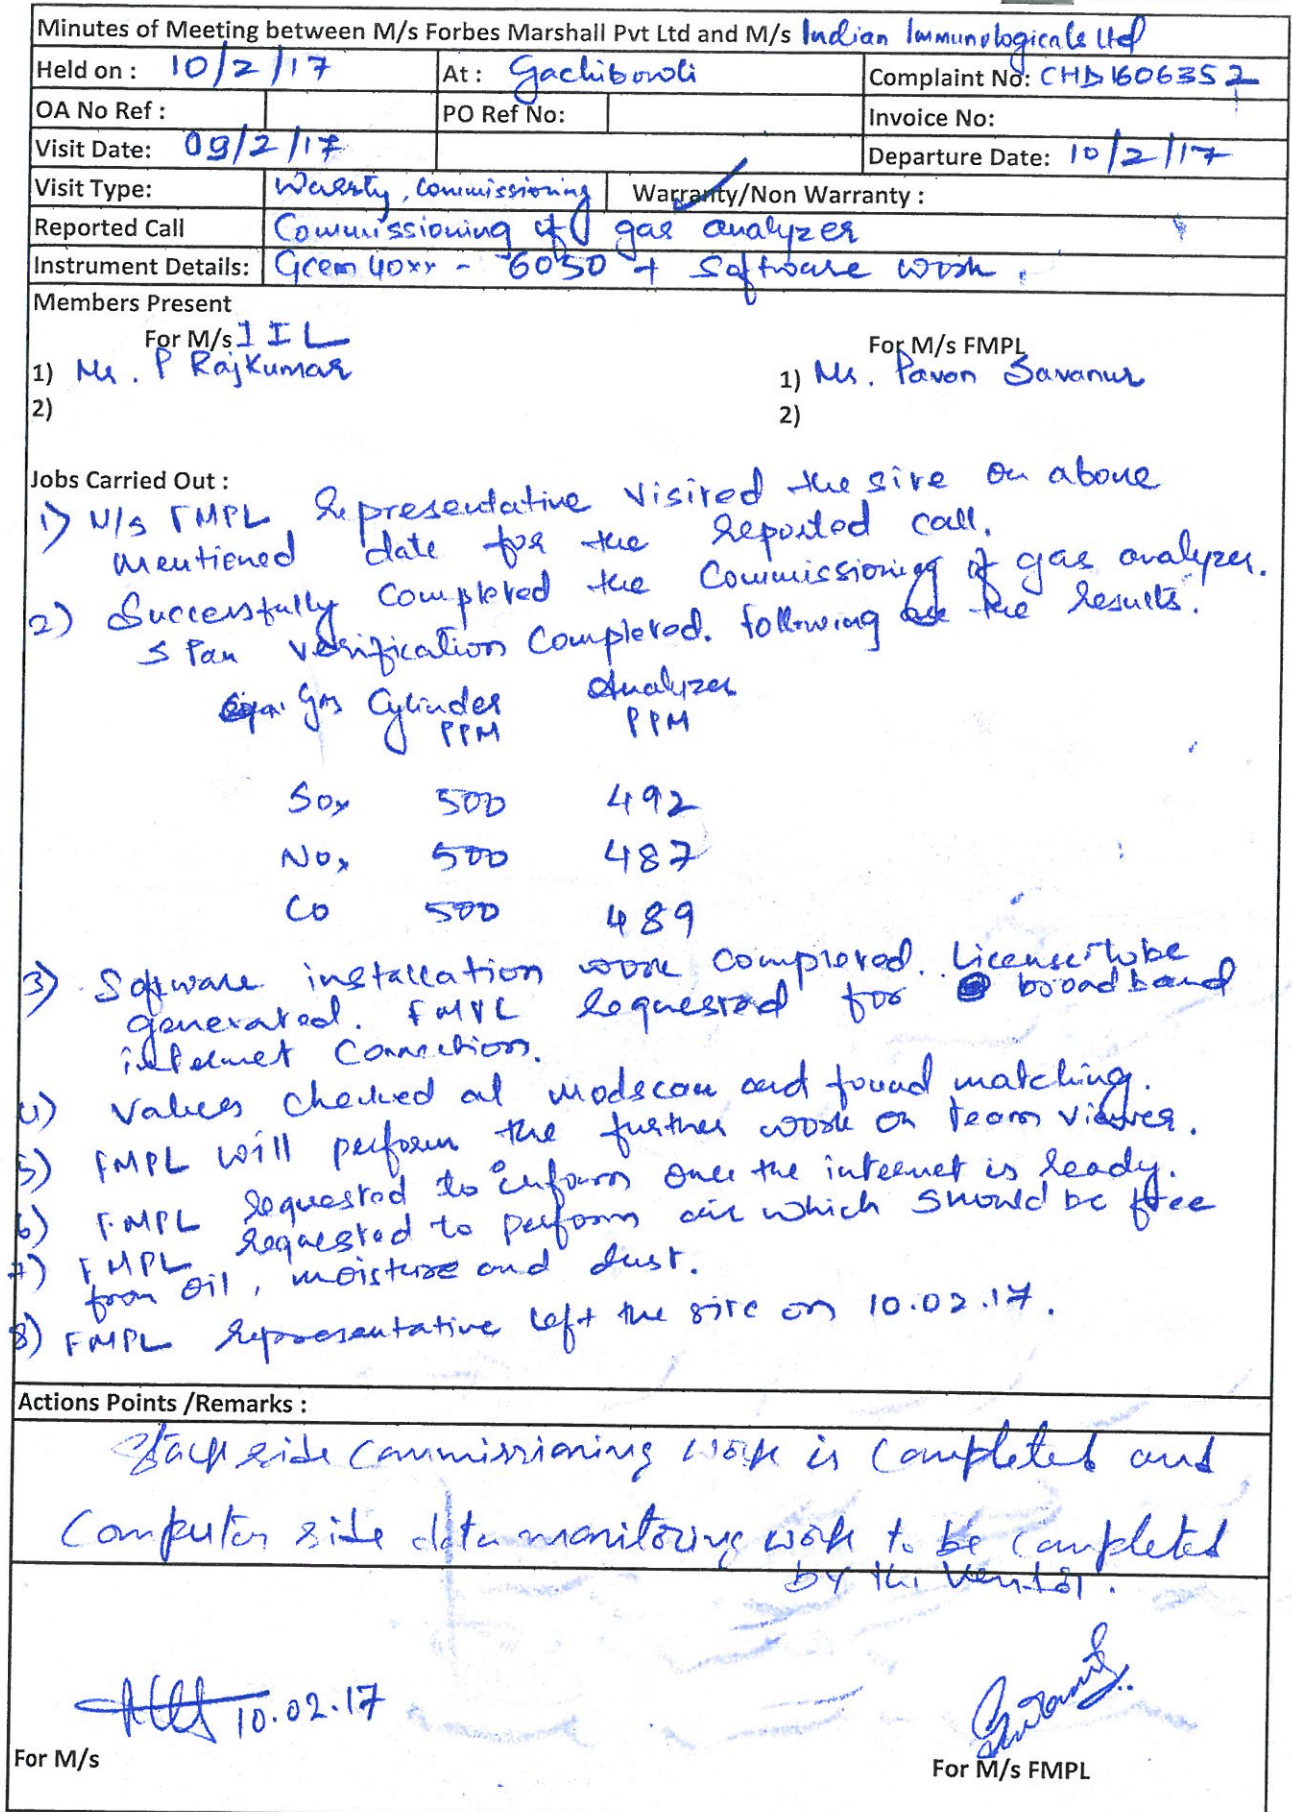 Minutes of Meeting between M/s Forbes Marshall Pvt Ltd and M/s Indian Immunologicals Ltd
Held on : 10/2/17 At : Gachibowli Complaint No: CHD1606352
OA No Ref : PO Ref No: Invoice No:
Visit Date: 09/2/17 Departure Date: 10/2/17
Visit Type: , Commissioning Warranty/Non Warranty :
Reported Call Commissioning of gas analyzer
Instrument Details: Gcem 40xx - 6050 + Software work.
Members Present
For M/s IIL For M/s FMPL
1) Mr. P Rajkumar 1) Mr. Pavan Savanur
2) 2)
Jobs Carried Out :
1) M/s FMPL Representative visited the site on above
mentioned date for the Reported call.
2) Successfully completed the Commissioning of gas analyzer.
Span verification Completed. following are the Results.
Gas Cylinder Analyzer
PPM PPM
SOx 500 492
NOx 500 487
CO 500 489
3) Software installation work completed. License to be
generated. FMPL Requested for broadband
internet Connection.
4) Values checked at modscan and found matching.
5) FMPL will perform the further work on team viewer.
6) FMPL Requested to inform once the internet is Ready.
7) FMPL Requested to perform air which should be free
from oil, moisture and dust.
8) FMPL Representative left the site on 10.02.17.
Actions Points /Remarks :
Stack side commissioning work is completed and
Computer side data monitoring work to be completed
by the vendor.
10.02.17
For M/s For M/s FMPL